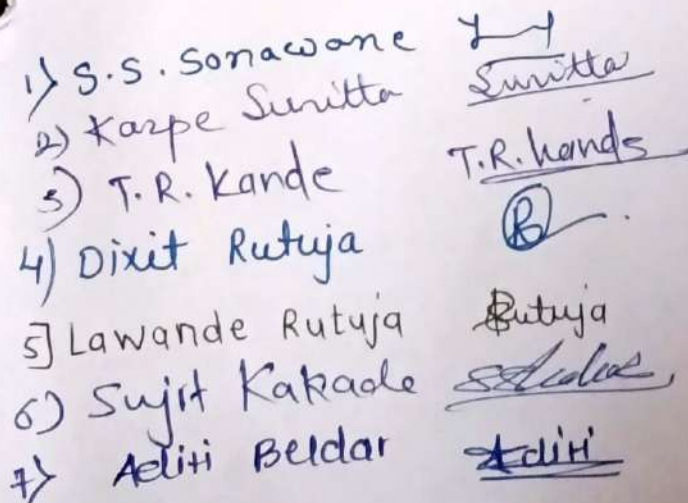 1) S.S. Sonawane
2) Karpe Sunitta Sunitta
3) T.R. Kande T.R. kands
4) Dixit Rutuja
5] Lawande Rutuja Rutuja
6) Sujit Kakade
7) Aditi Beldar Aditi